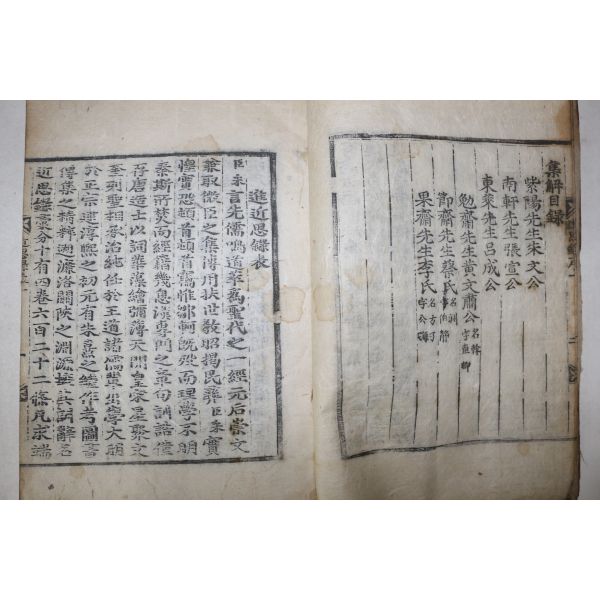 集解目錄
紫陽先生朱文公
南軒先生張宣公
東萊先生呂成公
勉齋先生黃文肅公 名榦 字直卿
節齋先生蔡氏 名淵 字伯靜
果齋先生李氏 名方子 字公晦
進近思錄表
臣采言先儒鳴道萃爲聖代之一經元后崇文
兼取微臣之集傳用扶世敎昭揭民彛臣采實
惶實恐頓首頓首竊惟鄒軻旣歿而理學不明
秦斯所焚而經籍幾息漢專門之章句訓詁僅
存唐造士以詞華藻繪彌薄天開皇宋星聚文
奎列聖相承治純任於王道諸儒輩出學大明
於正宗逮淳熙之初元有朱熹之繼作考圖書
傳集之精粹遡濂洛關陜之淵源摭其訓辭名
近思錄彙分十有四卷六百二十二條凡求端